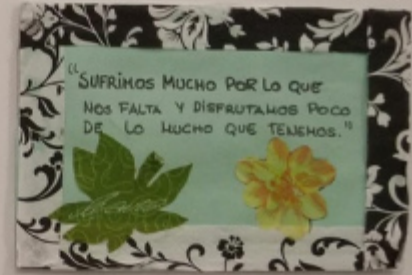 "SUFRIMOS MUCHO POR LO QUE
NOS FALTA Y DISFRUTAMOS POCO
DE LO MUCHO QUE TENEMOS."